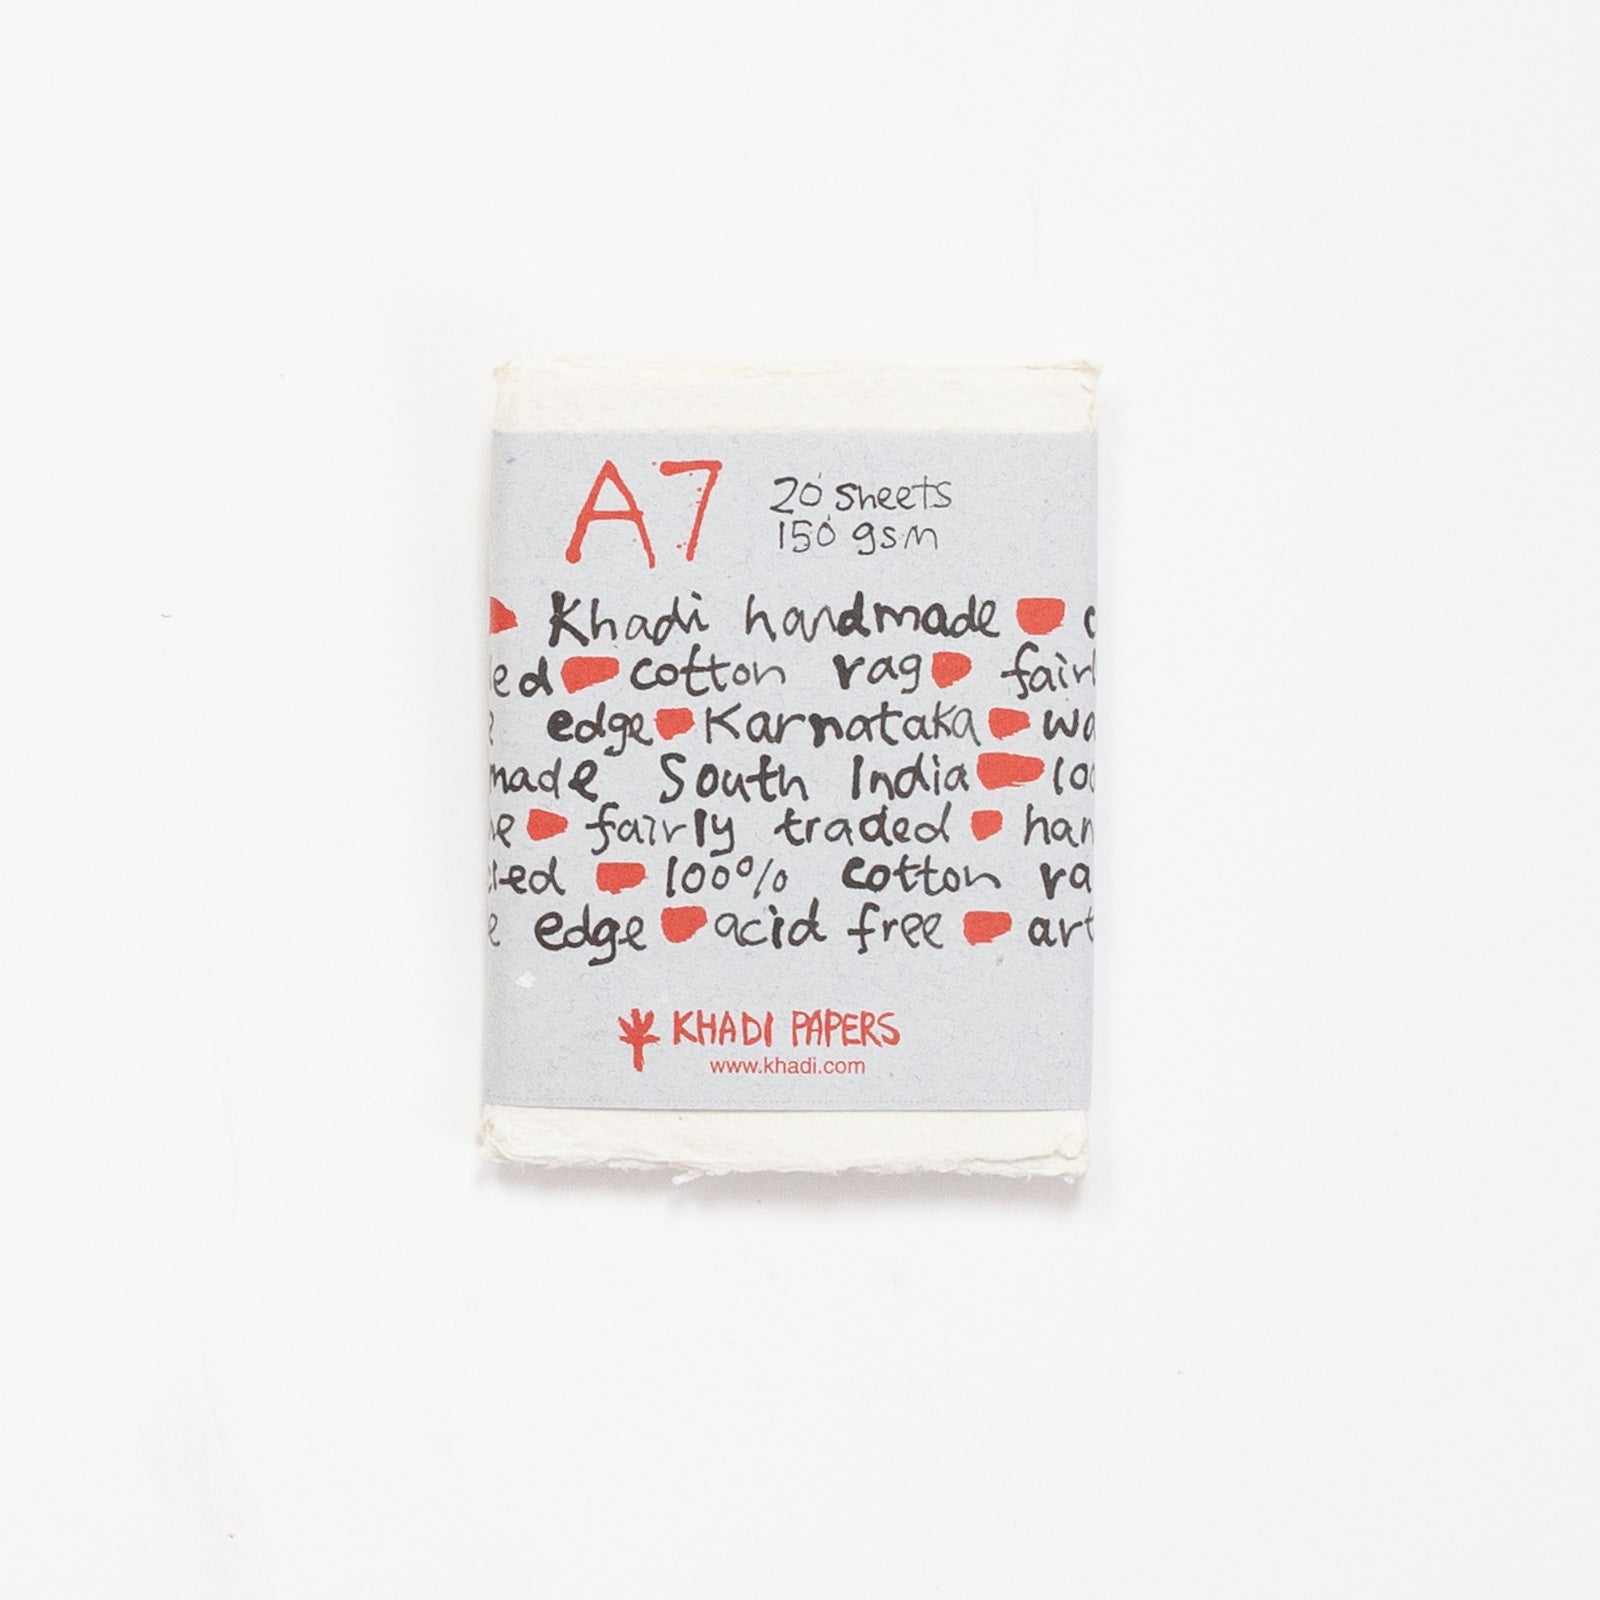 A7
20 sheets
150 gsm
Khadi handmade
cotton rag
edge Karnataka
made South India
fairly traded
100% cotton
edge acid free
KHADI PAPERS
www.khadi.com